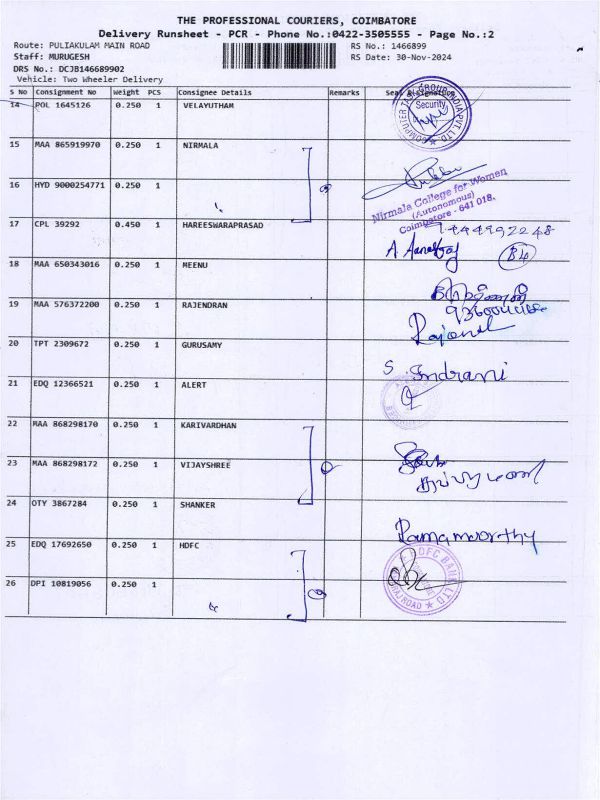 THE PROFESSIONAL COURIERS, COIMBATORE
Delivery Runsheet - PCR - Phone No.:0422-3505555 - Page No.:2
Route: PULIAKULAM MAIN ROAD RS No.: 1466899
Staff: MURUGESH RS Date: 30-Nov-2024
DRS No.: DCJB146689902
Vehicle: Two Wheeler Delivery
S No Consignment No Weight PCS Consignee Details Remarks
14 POL 1645126 0.250 1 VELAYUTHAM
Security
15 MAA 865919970 0.250 1 NIRMALA
16 HYD 9000254771 0.250 1
Nirmala College for Women
(Autonomous)
Coimbatore - 641 018.
17 CPL 39292 0.450 1 HAREESWARAPRASAD
18 MAA 650343016 0.250 1 MEENU
19 MAA 576372200 0.250 1 RAJENDRAN
20 TPT 2309672 0.250 1 GURUSAMY
S. Indrani
21 EDQ 12366521 0.250 1 ALERT
22 MAA 868298170 0.250 1 KARIVARDHAN
23 MAA 868298172 0.250 1 VIJAYSHREE
24 OTY 3867284 0.250 1 SHANKER
Ramamoorthy
25 EDQ 17692650 0.250 1 HDFC
HDFC BANK LTD
26 DPI 10819056 0.250 1